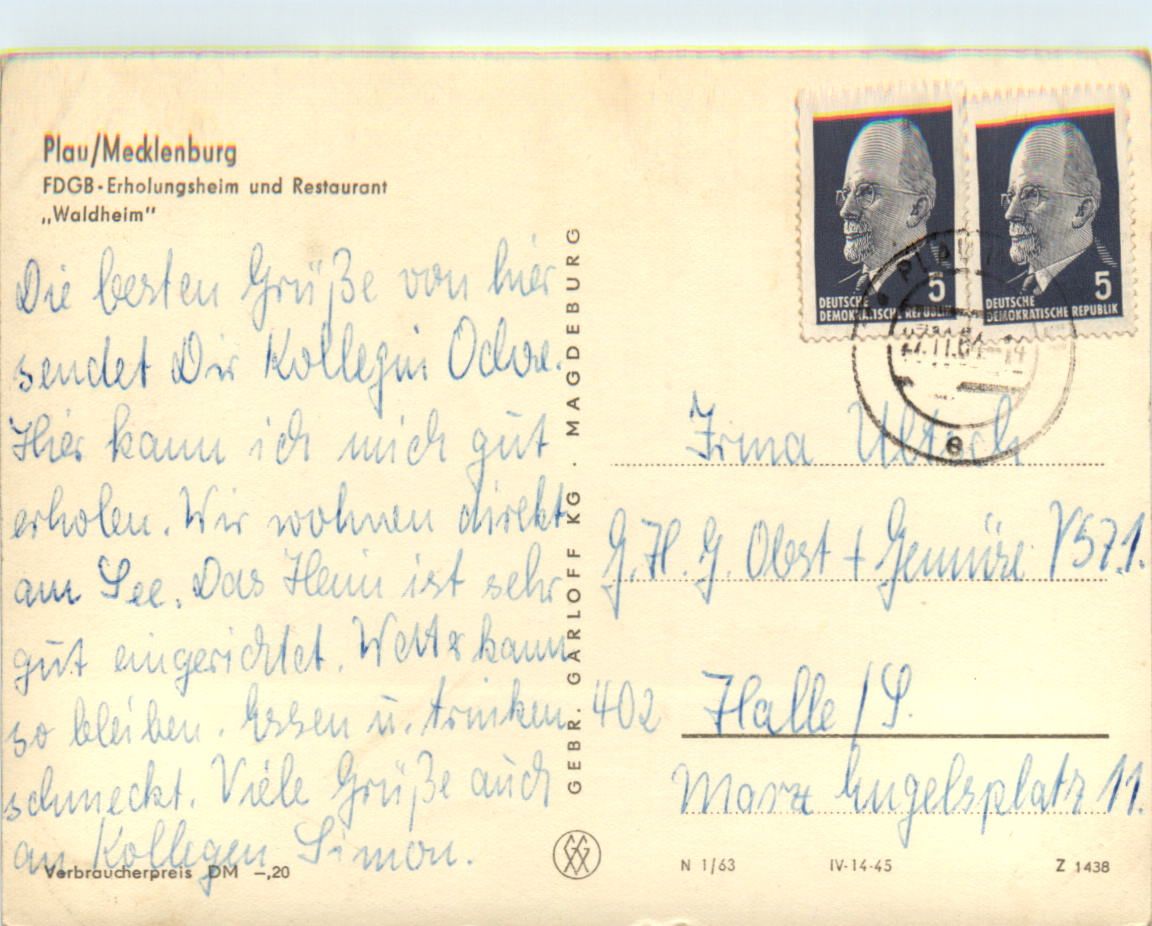 Plau/Mecklenburg
FDGB-Erholungsheim und Restaurant
„Waldheim"
Die besten Grüße von hier
sendet Dir Kollegin
Hier kann ich mich gut
erholen. Wir wohnen direkt
am See. Das Heim ist sehr
gut eingerichtet. Wetter kann
so bleiben. Essen u. trinken
schmeckt. Viele Grüße auch
an Kollegen Simon.
Verbraucherpreis DM –,20
GEBR. GARLOFF KG. MAGDEBURG
5
DEUTSCHE
DEMOKRATISCHE REPUBLIK
5
DEUTSCHE
DEMOKRATISCHE REPUBLIK
PLAU
e
Irma
G.H.G. Obst + Gemüse VS71.
402 Halle/S.
Marx Engelsplatz 11.
N 1/63
IV-14-45
Z 1438